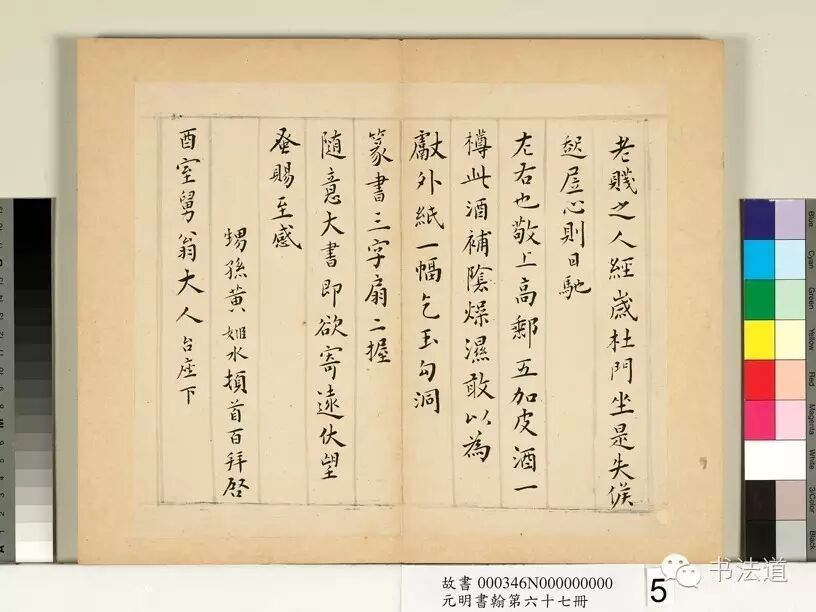 老賤之人經歲杜門坐是失候
起居心則日馳
左右也敬上高郵五加皮酒一
樽此酒補陰燥濕敢以為
獻外紙一幅乞玉勾洞
篆書三字扇二握
隨意大書即欲寄遠伏望
蚤賜至感
甥孫黃姬水頓首百拜啓
酉室舅翁大人台座下
故書 000346N000000000
元明書翰第六十七冊
5
书法道
Blue
Cyan
Green
Yellow
Red
Magenta
White
3/Color
Black